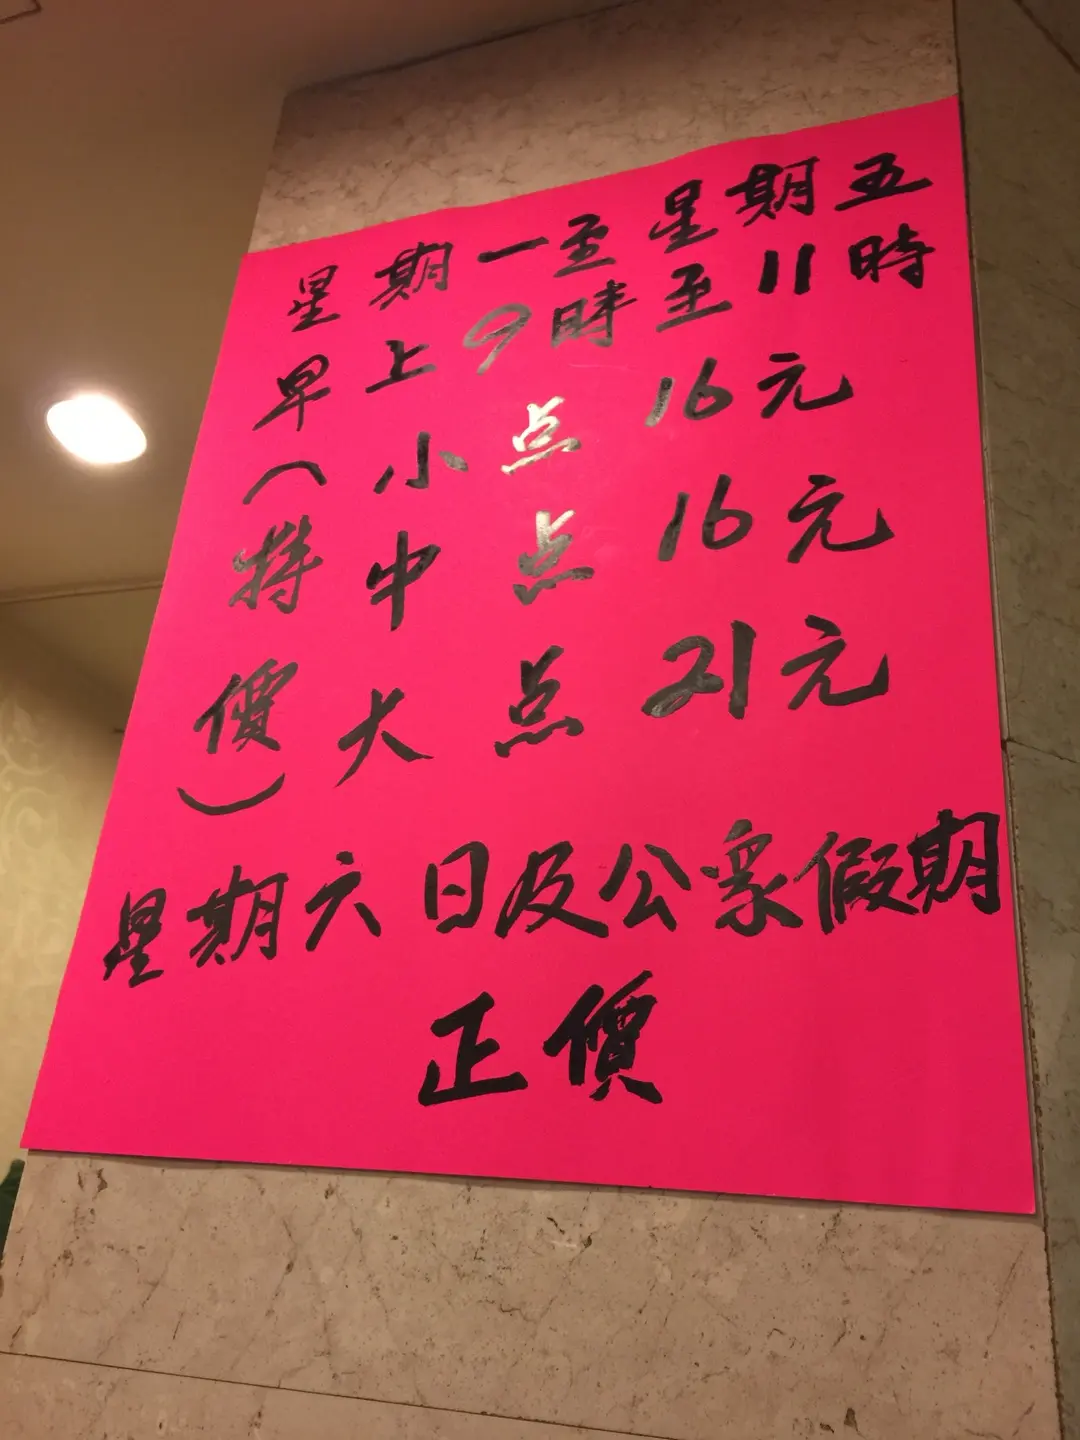 星期一至星期五
早上9時至11時
(特價)
小点16元
中点16元
大点21元
星期六日及公眾假期
正價